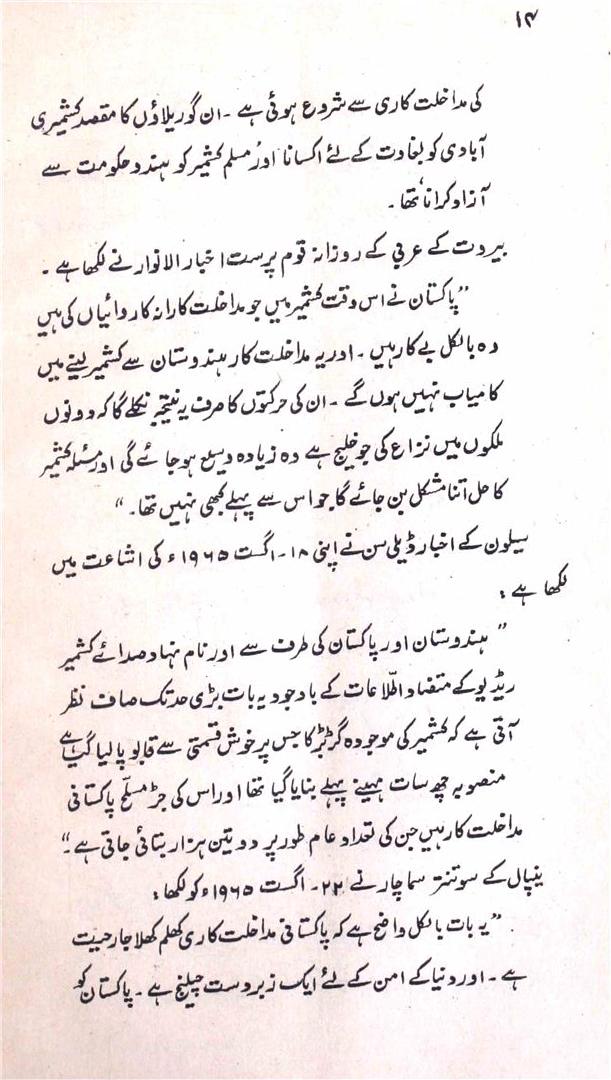 ۱۴
کی مداخلت کاری سے شروع ہوئی ہے ۔ ان گوریلاؤں کا مقصد کشمیری
آبادی کو بغاوت کے لئے اکسانا اور مسلم کشمیر کو ہندو حکومت سے
آزاد کرانا تھا ۔
بیروت کے عربی کے روزانہ قوم پرست اخبار الانوار نے لکھا ہے ۔
"پاکستان نے اس وقت کشمیر میں جو مداخلت کارانہ کاروائیاں کی ہیں
وہ بالکل بے کار ہیں ۔ اور یہ مداخلت کار ہندوستان سے کشمیر لینے میں
کامیاب نہیں ہوں گے ۔ ان کی حرکتوں کا صرف یہ نتیجہ نکلے گا کہ دونوں
ملکوں میں نزاع کی جو خلیج ہے وہ زیادہ وسیع ہو جائے گی اور مسئلہ کشمیر
کا حل اتنا مشکل بن جائے گا جو اس سے پہلے کبھی نہیں تھا ۔"
سیلون کے اخبار ڈیلی سن نے اپنی ۱۸ ۔ اگست ۱۹۶۵ء کی اشاعت میں
لکھا ہے :
"ہندوستان اور پاکستان کی طرف سے اور نام نہاد صدائے کشمیر
ریڈیو کے متضاد اطلاعات کے باوجود یہ بات بڑی حد تک صاف نظر
آتی ہے کہ کشمیر کی موجودہ گڑبڑ کا جس پر خوش قسمتی سے قابو پا لیا گیا ہے
منصوبہ چھ سات مہینے پہلے بنایا گیا تھا اور اس کی جڑ مسلّح پاکستانی
مداخلت کار ہیں جن کی تعداد عام طور پر دو تین ہزار بتائی جاتی ہے ۔"
نیپال کے سوتنتر سماچار نے ۲۲ ۔ اگست ۱۹۶۵ء کو لکھا :
"یہ بات بالکل واضح ہے کہ پاکستانی مداخلت کاری کھلم کھلا جارحیت
ہے ۔ اور دنیا کے امن کے لئے ایک زبردست چیلنج ہے ۔ پاکستان کو